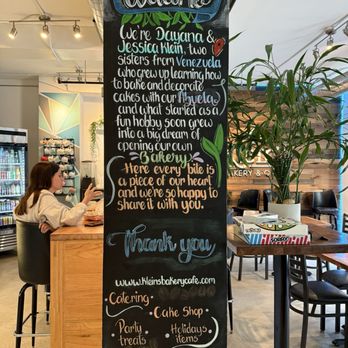 Welcome
We're Dayana &
Jessica Klein, two
sisters from Venezuela
who grew up learning how
to bake and decorate
cakes with our Abuela
and what started as a
fun hobby soon grew
into a big dream of
opening our own
Bakery
Here every bite is
a piece of our heart
and we're so happy to
share it with you.
Thank you
www.kleinsbakerycafe.com
Catering
Cake Shop
Party
treats
Holidays
items
BAKERY &